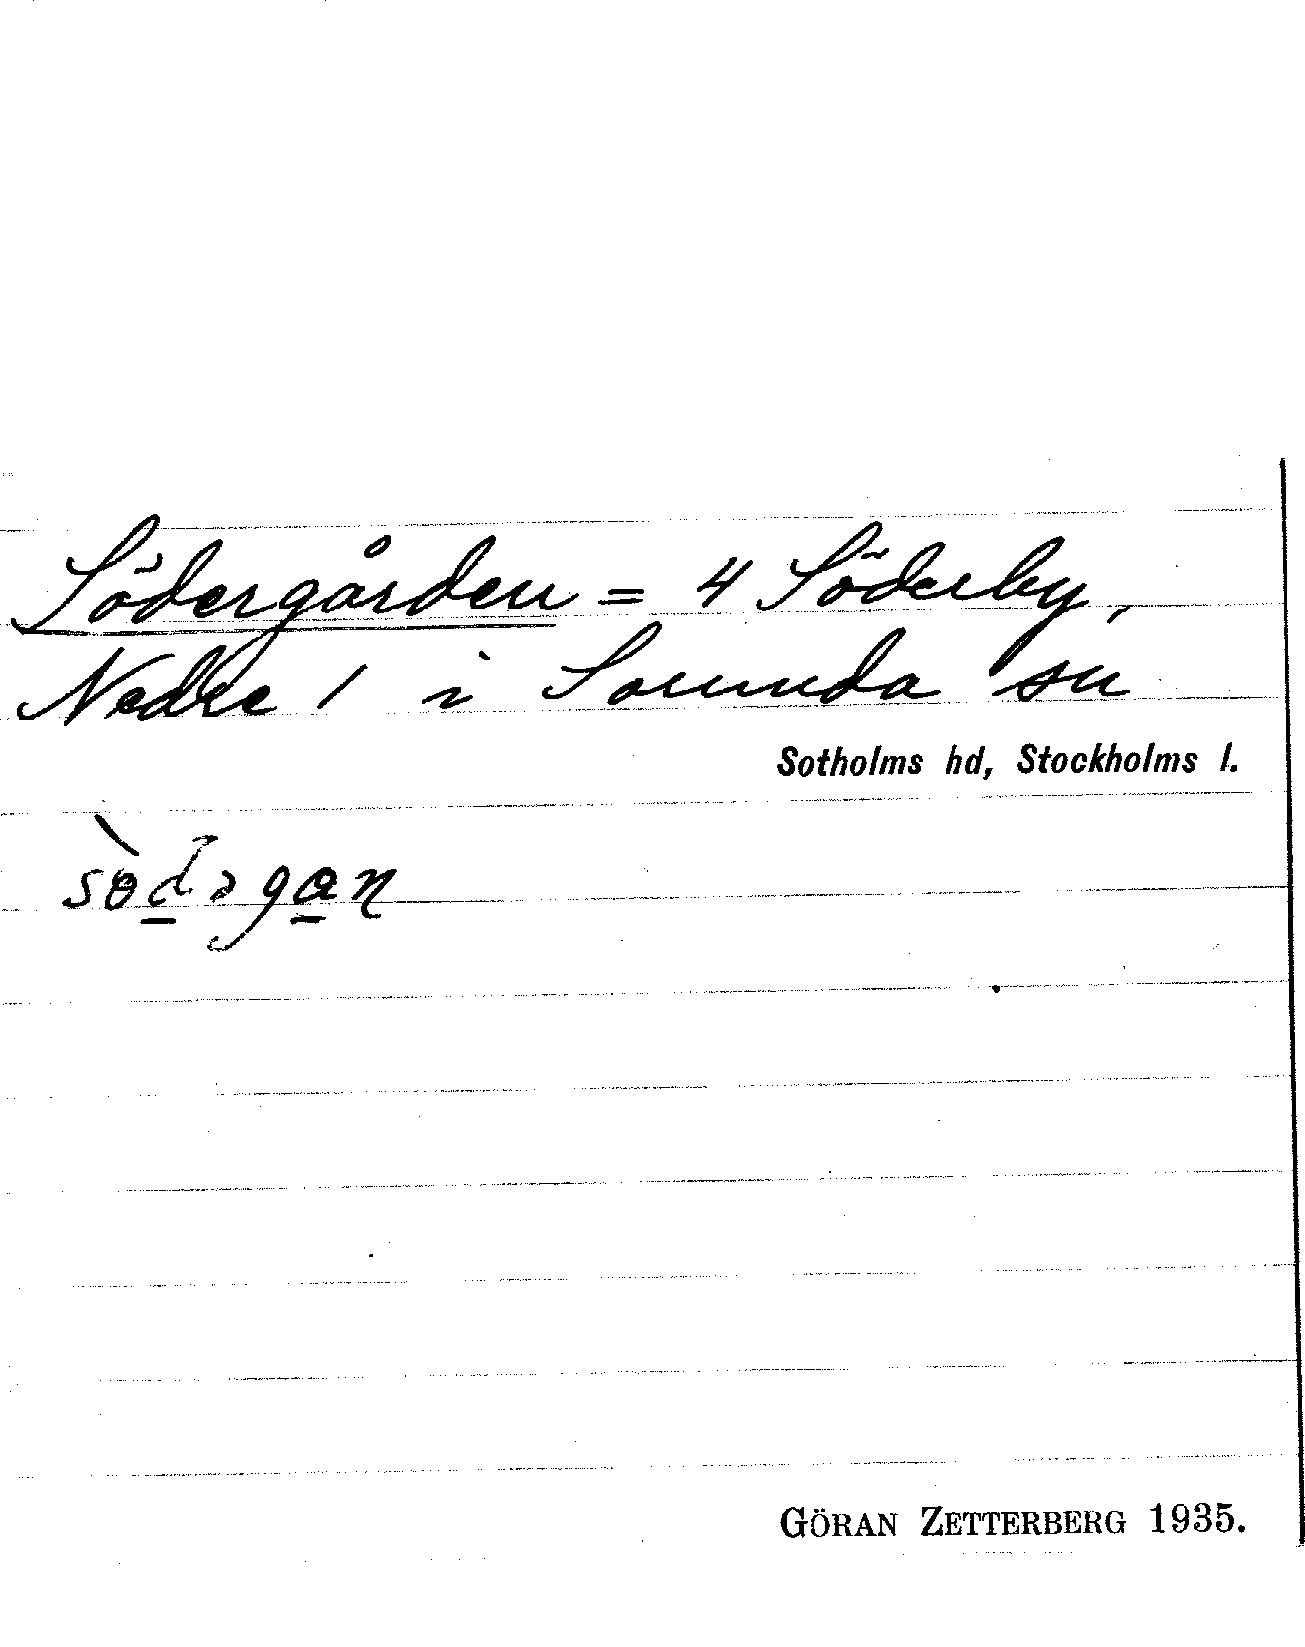 Södergården = 4 Söderby,
Nedre 1 i Sorunda sn
Sotholms hd, Stockholms l.
GÖRAN ZETTERBERG 1935.